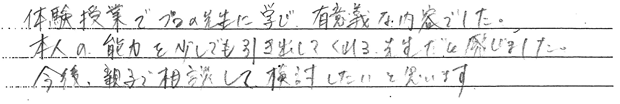 体験授業でプロの先生に学び、有意義な内容でした。
本人の能力を少しでも引き出してくれる先生だと感じました。
今後、親子で相談して検討したいと思います